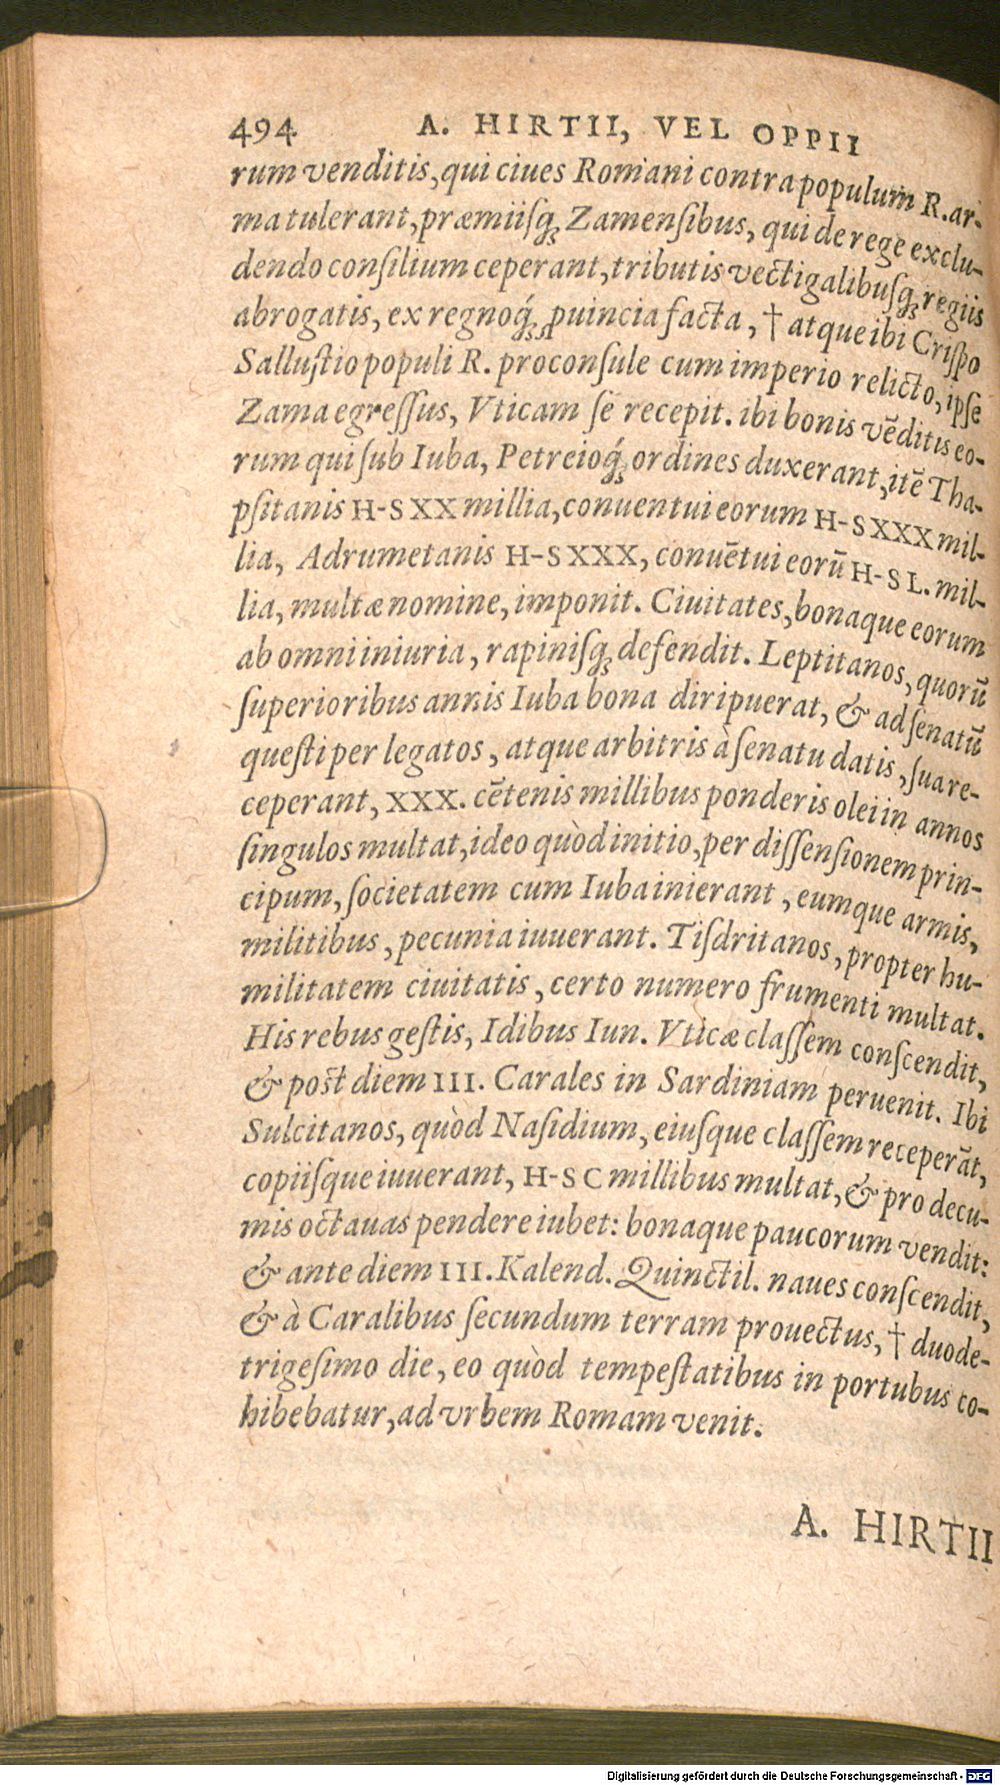 494 A. HIRTII, VEL OPPII
rum venditis, qui ciues Romani contra populum R. ar-
ma tulerant, præmiisq; Zamensibus, qui de rege exclu-
dendo consilium ceperant, tributis vectigalibusq; regiis
abrogatis, ex regnoq́; ꝓuincia facta, † atque ibi Crispo
Sallustio populi R. proconsule cum imperio relicto, ipse
Zama egressus, Vticam se recepit. ibi bonis vēditis eo-
rum qui sub Iuba, Petreioq́; ordines duxerant, itē Tha-
psitanis H-S XX millia, conuentui eorum H-S XXX mil-
lia, Adrumetanis H-S XXX, conuētui eorū H-S L. mil-
lia, multæ nomine, imponit. Ciuitates, bonaque eorum
ab omni iniuria, rapinisq; defendit. Leptitanos, quorū
superioribus annis Iuba bona diripuerat, & ad senatū
questi per legatos, atque arbitris à senatu datis, sua re-
ceperant, XXX. cētenis millibus ponderis olei in annos
singulos multat, ideo quòd initio, per dissensionem prin-
cipum, societatem cum Iuba inierant, eumque armis,
militibus, pecunia iuuerant. Tisdritanos, propter hu-
militatem ciuitatis, certo numero frumenti multat.
His rebus gestis, Idibus Iun. Vticæ classem conscendit,
& post diem III. Carales in Sardiniam peruenit. Ibi
Sulcitanos, quòd Nasidium, eiusque classem receperāt,
copiisque iuuerant, H-S C millibus multat, & pro decu-
mis octauas pendere iubet: bonaque paucorum vendit:
& ante diem III. Kalend. Quinctil. naues conscendit,
& à Caralibus secundum terram prouectus, † duode-
trigesimo die, eo quòd tempestatibus in portubus co-
hibebatur, ad vrbem Romam venit.
A. HIRTII
Digitalisierung gefördert durch die Deutsche Forschungsgemeinschaft - DFG